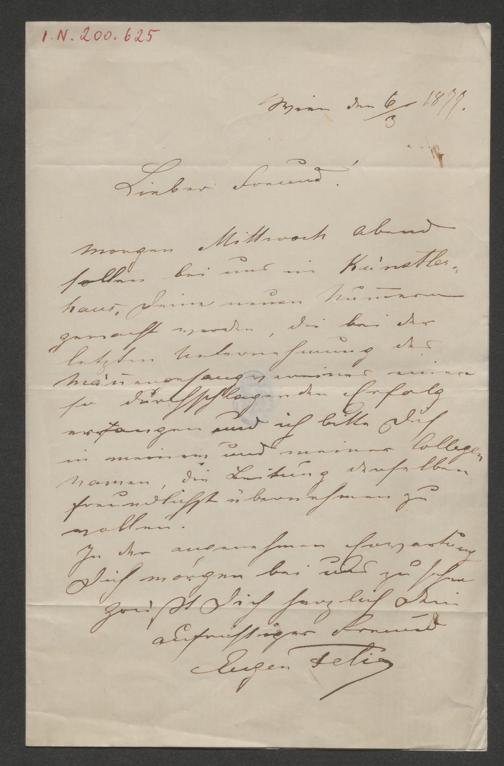 I.N. 200.625
Wien den 6/3 1877.
Lieber Freund!
morgen Mittwoch abend
sollen bei uns im Künstler-
haus, Deine neuen Nummern
gemacht werden, die bei der
letzten Unternehmung des
Männergesangvereines einen
so durchschlagenden Erfolg
errangen und ich bitte Dich
in meinem und meiner Collegen
Namen, die Leitung derselben
freundlichst übernehmen zu
wollen.
In der angenehmen Erwartung
Dich morgen bei uns zu sehen
grüßt Dich herzlich Dein
aufrichtiger Freund
Eugen Felix